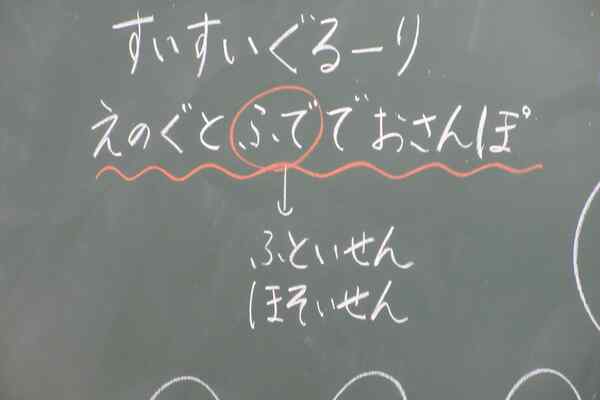 すいすいぐるーり
えのぐとふででおさんぽ
ふといせん
ほそいせん